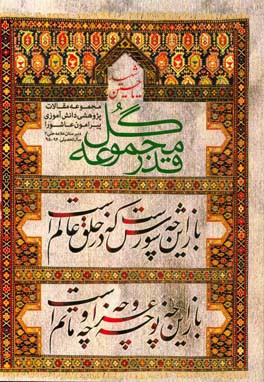 شب
مجموعه مقالات
پژوهشی دانش‌آموزی
پیرامون عاشورا
دبیرستان علامه حلی ۲
قدر مجموعه گل
باز این چه شورش است که در خلق عالم است
باز این چه نوحه و چه عزا و چه ماتم است